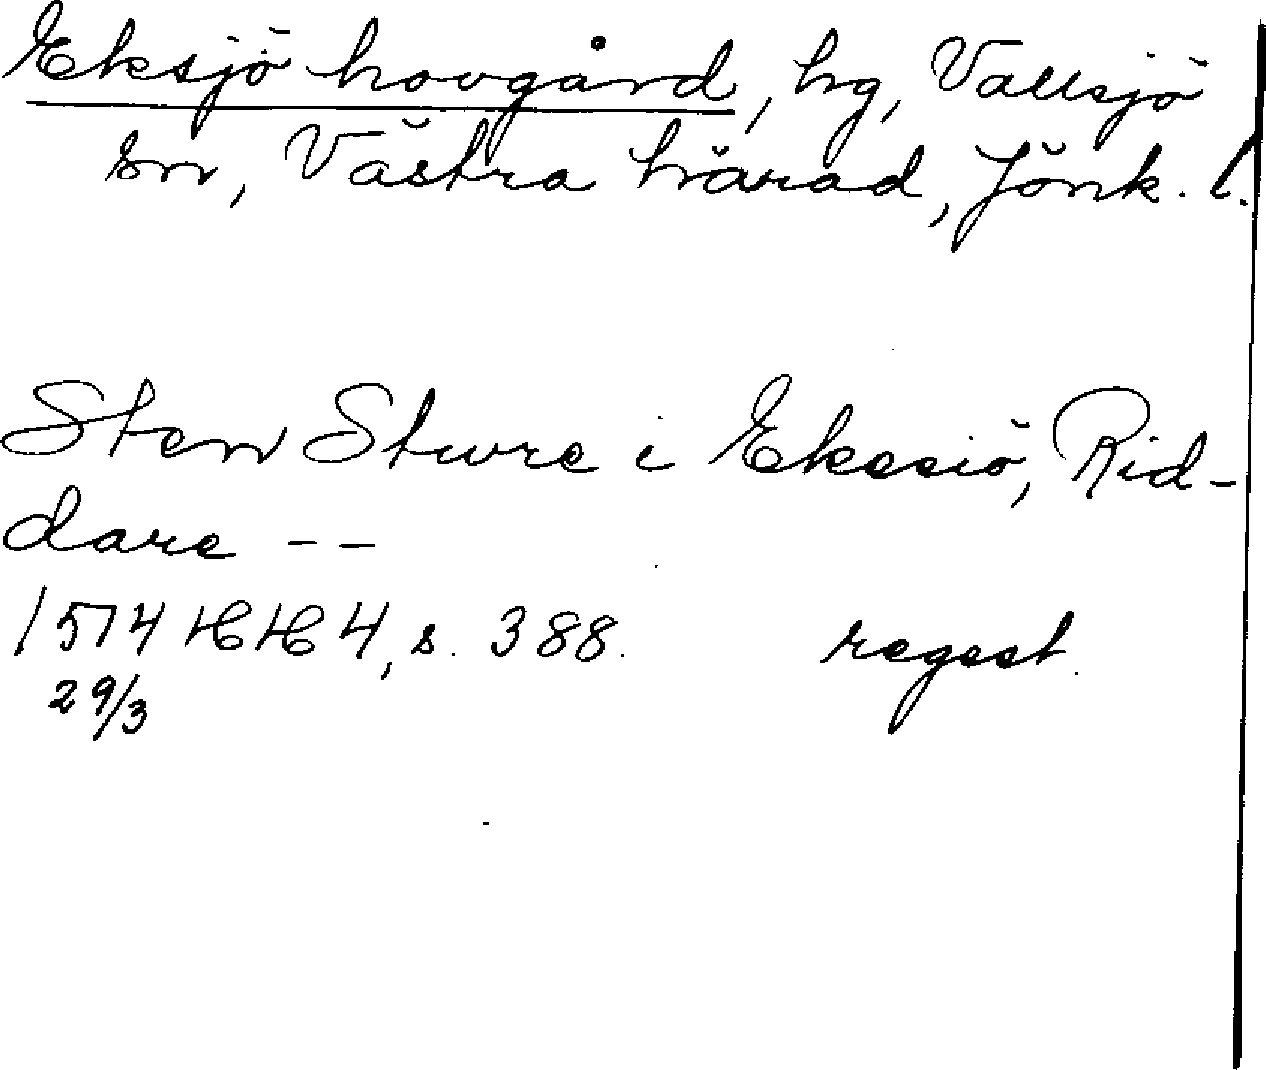 Eksjö hovgård, hg, Vallsjö
sn, Västra härad, Jönk. l.
Sten Sture i Ekesiö, Rid-
dare --
1574 HH 4, s. 388. regest.
29/3